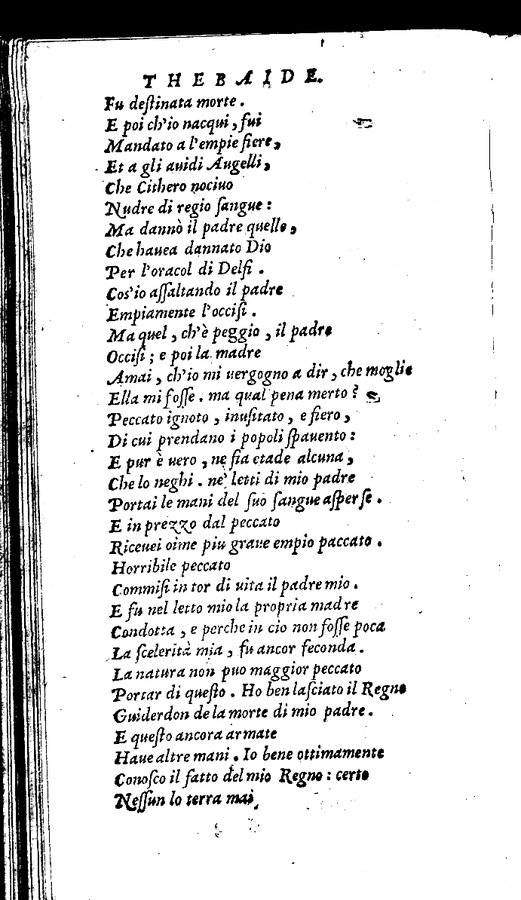 THEBAIDE.
Fu deſtinata morte.
E poi ch'io nacqui, fui
Mandato a l'empie fiere,
Et a gli auidi Augelli,
Che Cithero nociuo
Nudre di regio ſangue:
Ma dannò il padre quello,
Che hauea dannato Dio
Per l'oracol di Delfi.
Coſ'io aſſaltando il padre
Empiamente l'occiſi.
Ma quel, ch'è peggio, il padre
Occiſi; e poi la madre
Amai, ch'io mi uergogno a dir, che moglie
Ella mi foſſe. ma qual pena merto?
Peccato ignoto, inuſitato, e fiero,
Di cui prendano i popoli ſpauento:
E pur è uero, ne ſia etade alcuna,
Che lo neghi. ne' letti di mio padre
Portai le mani del ſuo ſangue aſperſe.
E in prezzo dal peccato
Riceuei oime piu graue empio paccato.
Horribile peccato
Commiſi in tor di uita il padre mio.
E fu nel letto mio la propria madre
Condotta, e perche in cio non foſſe poca
La ſcelerità mia, fu ancor feconda.
La natura non puo maggior peccato
Portar di queſto. Ho ben laſciato il Regno
Guiderdon de la morte di mio padre.
E queſto ancora armate
Haue altre mani. Io bene ottimamente
Conoſco il fatto del mio Regno: certo
Neſſun lo terra mai,